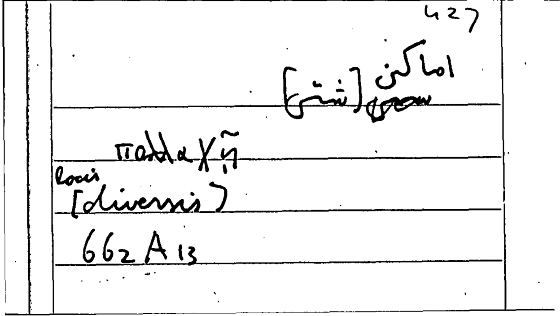 427
اماكن [شتى]
πολλαχῇ
locis
[diversis)
662 A 13